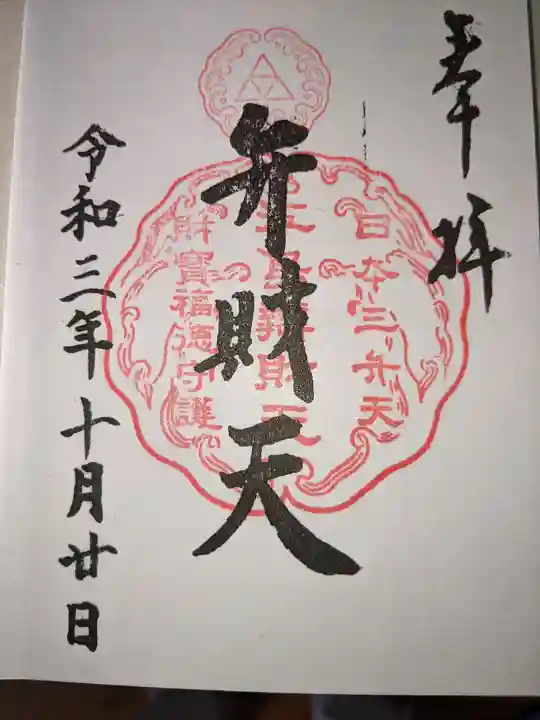 奉拝
日本三弁天
弁財天
財寶福徳守護
令和三年十月廿日